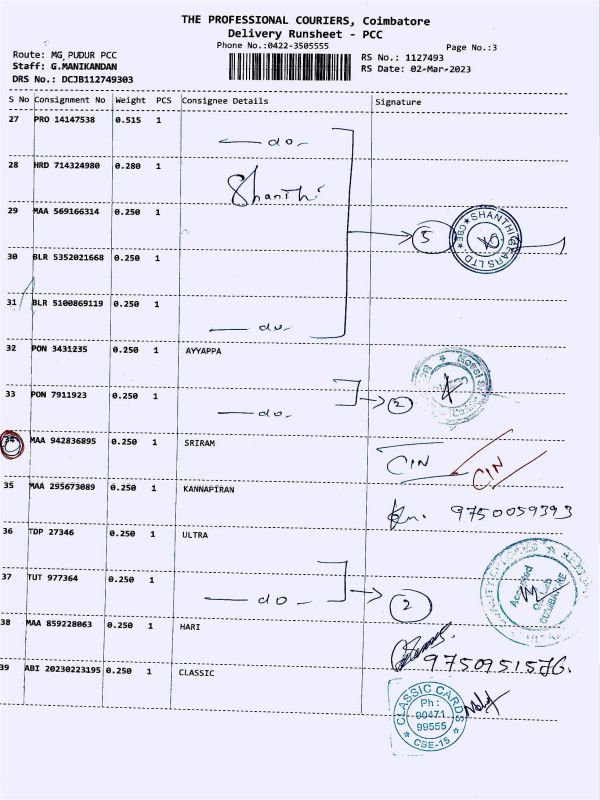 THE PROFESSIONAL COURIERS, Coimbatore
Delivery Runsheet - PCC
Phone No.:0422-3505555
Page No.:3
Route: MG PUDUR PCC
RS No.: 1127493
Staff: G.MANIKANDAN
RS Date: 02-Mar-2023
DRS No.: DCJB112749303
S No Consignment No Weight PCS Consignee Details Signature
27 PRO 14147538 0.515 1
do
28 HRD 714324980 0.280 1
Shanthi
29 MAA 569166314 0.250 1
5
SHANTHI GEARS LTD CBE
30 BLR 5352021668 0.250 1
31 BLR 5100869119 0.250 1
do
32 PON 3431235 0.250 1 AYYAPPA
33 PON 7911923 0.250 1
do 2
34 MAA 942836895 0.250 1 SRIRAM
CIN CIN
35 MAA 295673089 0.250 1 KANNAPIRAN
9750059393
36 TDP 27346 0.250 1 ULTRA
37 TUT 977364 0.250 1
do 2
Accepted
COIMBATORE
38 MAA 859228063 0.250 1 HARI
9750951576.
39 ABI 20230223195 0.250 1 CLASSIC
CLASSIC CARDS
Ph:
00471
99555
CBE-15